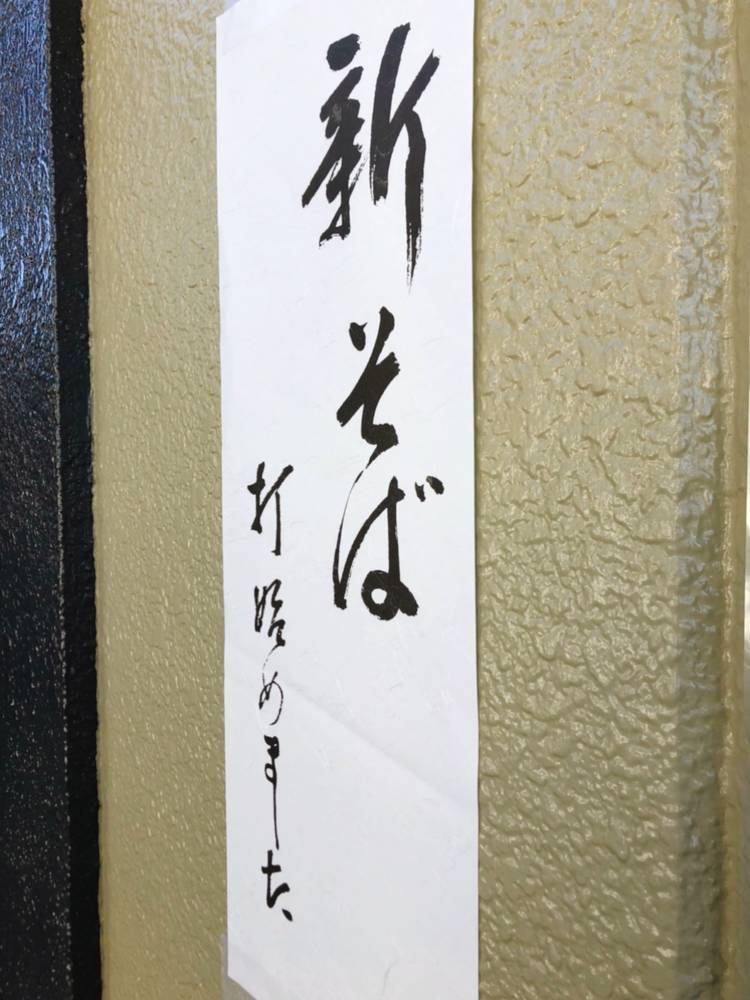 新そば
打始めました